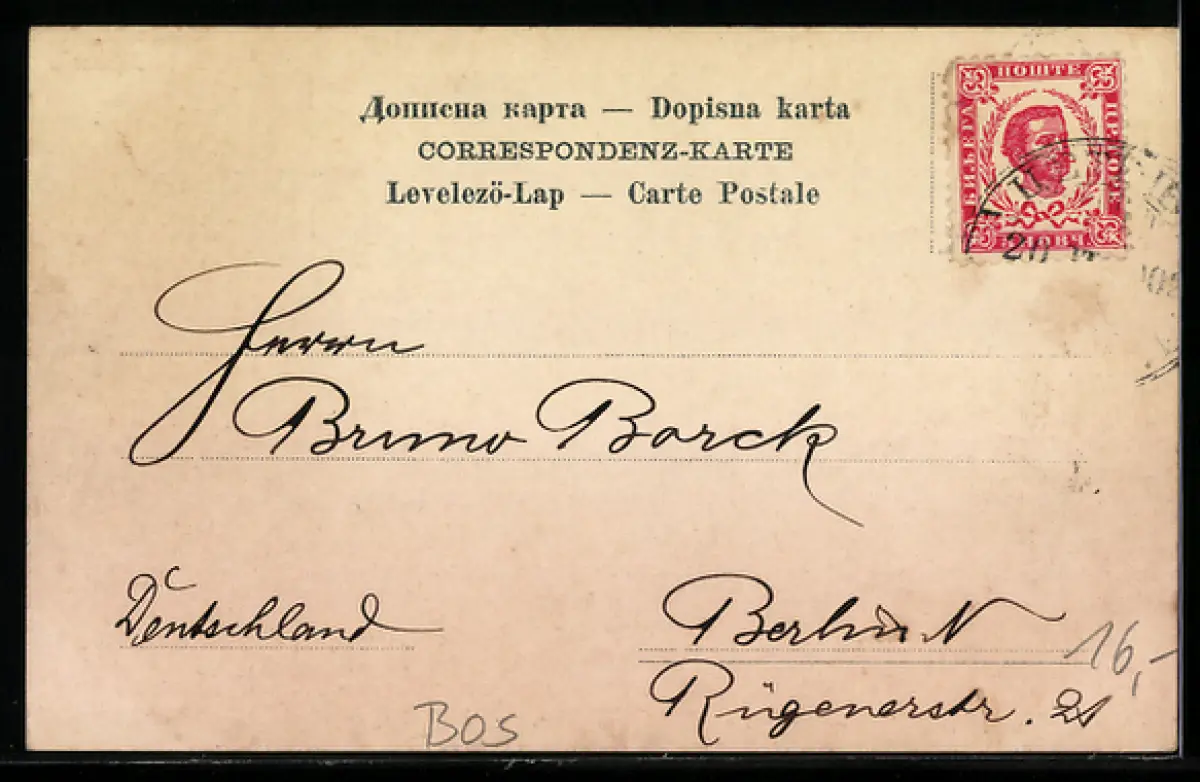 Дописна карта — Dopisna karta
CORRESPONDENZ-KARTE
Levelező-Lap — Carte Postale
ПОШТЕ
БИЉЕГА
ЦР.ГОРЕ
НОВЧ
Herrn
Bruno Borck
Deutschland
Berlin N
16,-
Rügenerstr. 21
BOS